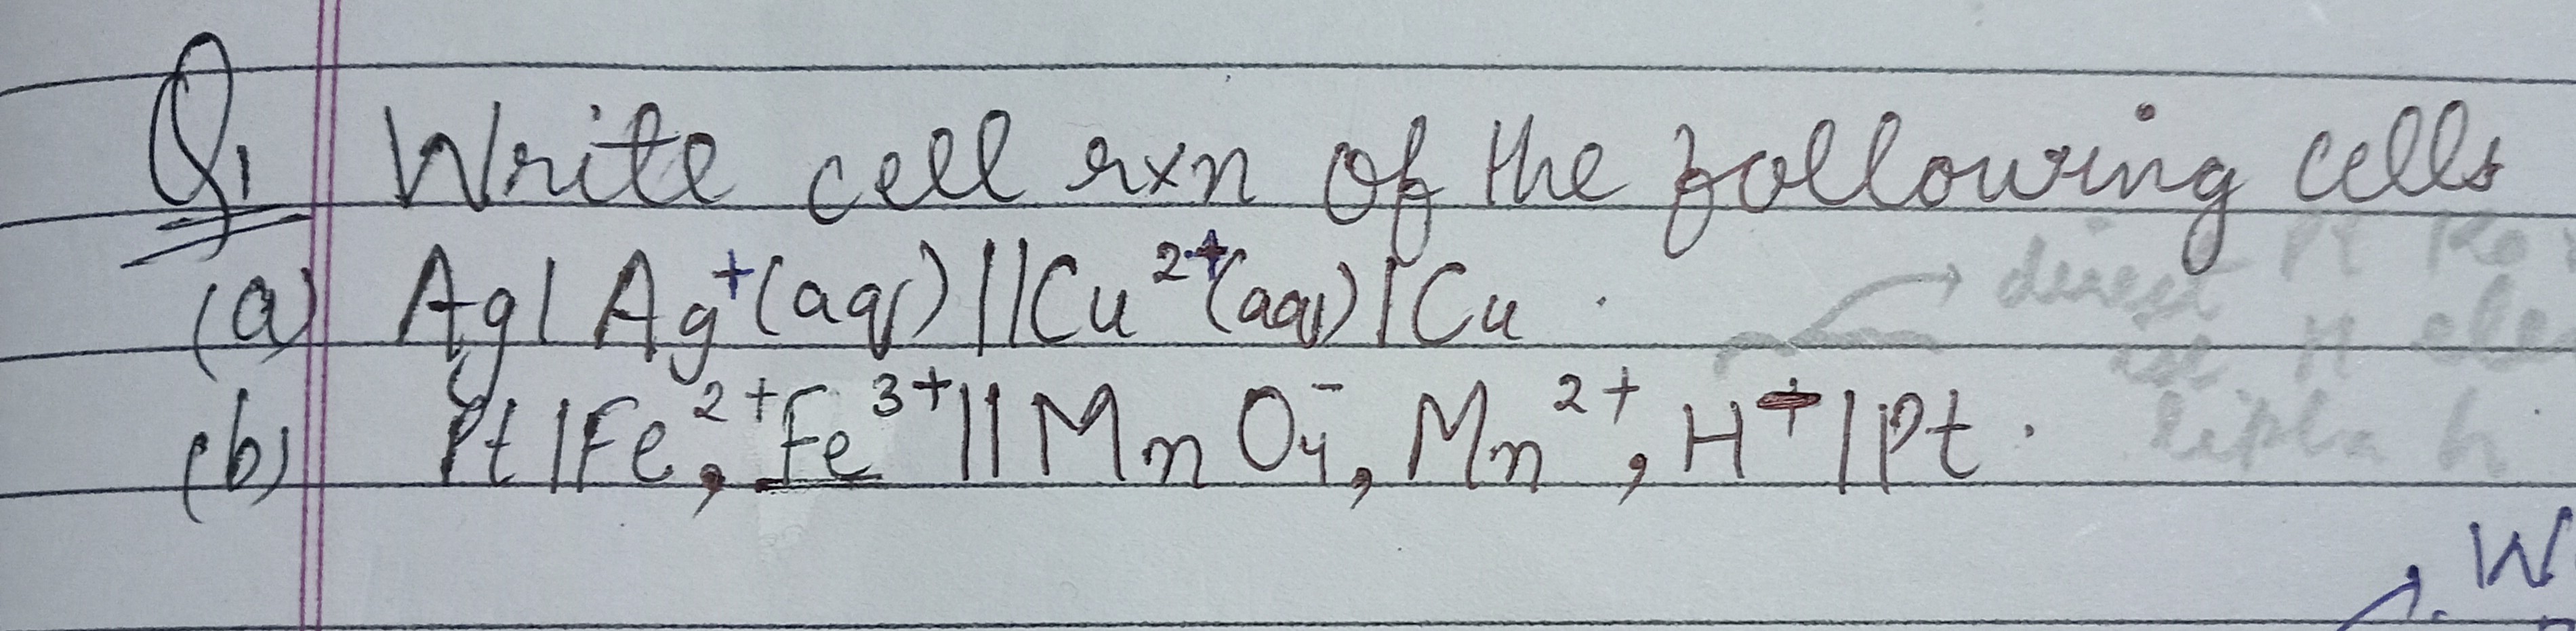 Q1 Write cell rxn of the following cells
(a) Ag | Ag⁺(aq) || Cu²⁺(aq) | Cu .
direct Pt
H
(b) Pt | Fe²⁺, Fe³⁺ || MnO₄⁻, Mn²⁺, H⁺ | Pt .
W